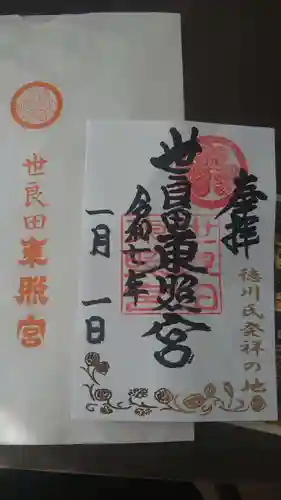 奉拝
徳川氏発祥の地
世良田東照宮
令和七年
一月一日
世良田東照宮